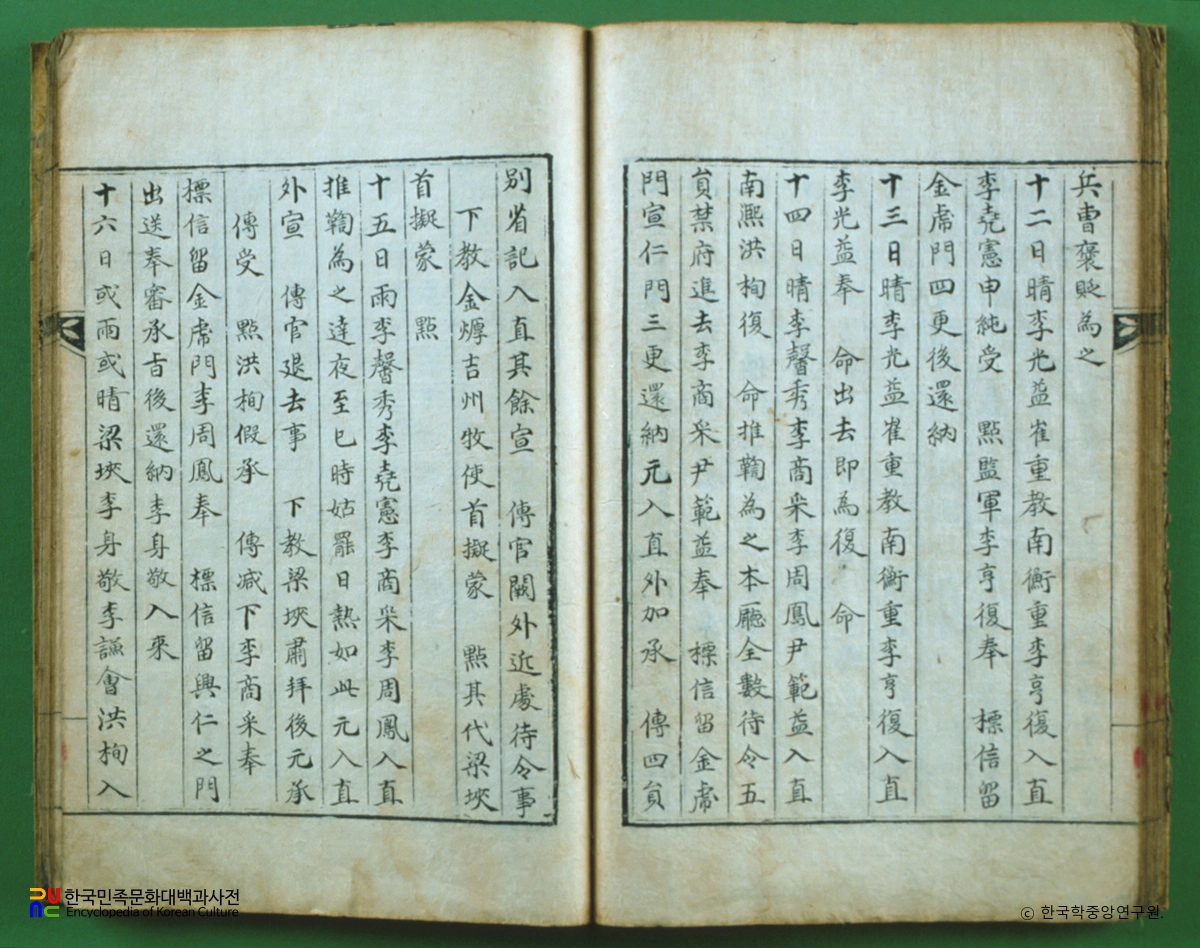 兵曹褒貶為之
十二日晴李光益崔重教南衡重李亨復入直
李堯憲申純受 點監軍李亨復奉 標信留
金虎門四更後還納
十三日晴李光益崔重教南衡重李亨復入直
李光益奉 命出去即為復 命
十四日晴李馨秀李商采李周鳳尹範益入直
南熈洪栒復 命推鞫為之本廳全數待令五
負禁府進去李商采尹範益奉 標信留金虎
門宣仁門三更還納元入直外加承 傳四負
別省記入直其餘宣 傳官闕外近處待令事
下教金爀吉州牧使首擬蒙 點其代梁垓
首擬蒙 點
十五日雨李馨秀李堯憲李商采李周鳳入直
推鞫為之達夜至巳時姑罷日熱如此元入直
外宣 傳官退去事 下教梁垓肅拜後元承
傳受 點洪栒假承 傳减下李商采奉
標信留金虎門李周鳳奉 標信留興仁之門
出送奉審承旨後還納李身敬入來
十六日或雨或晴梁垓李身敬李謙會洪栒入
한국민족문화대백과사전
Encyclopedia of Korean Culture
ⓒ 한국학중앙연구원.